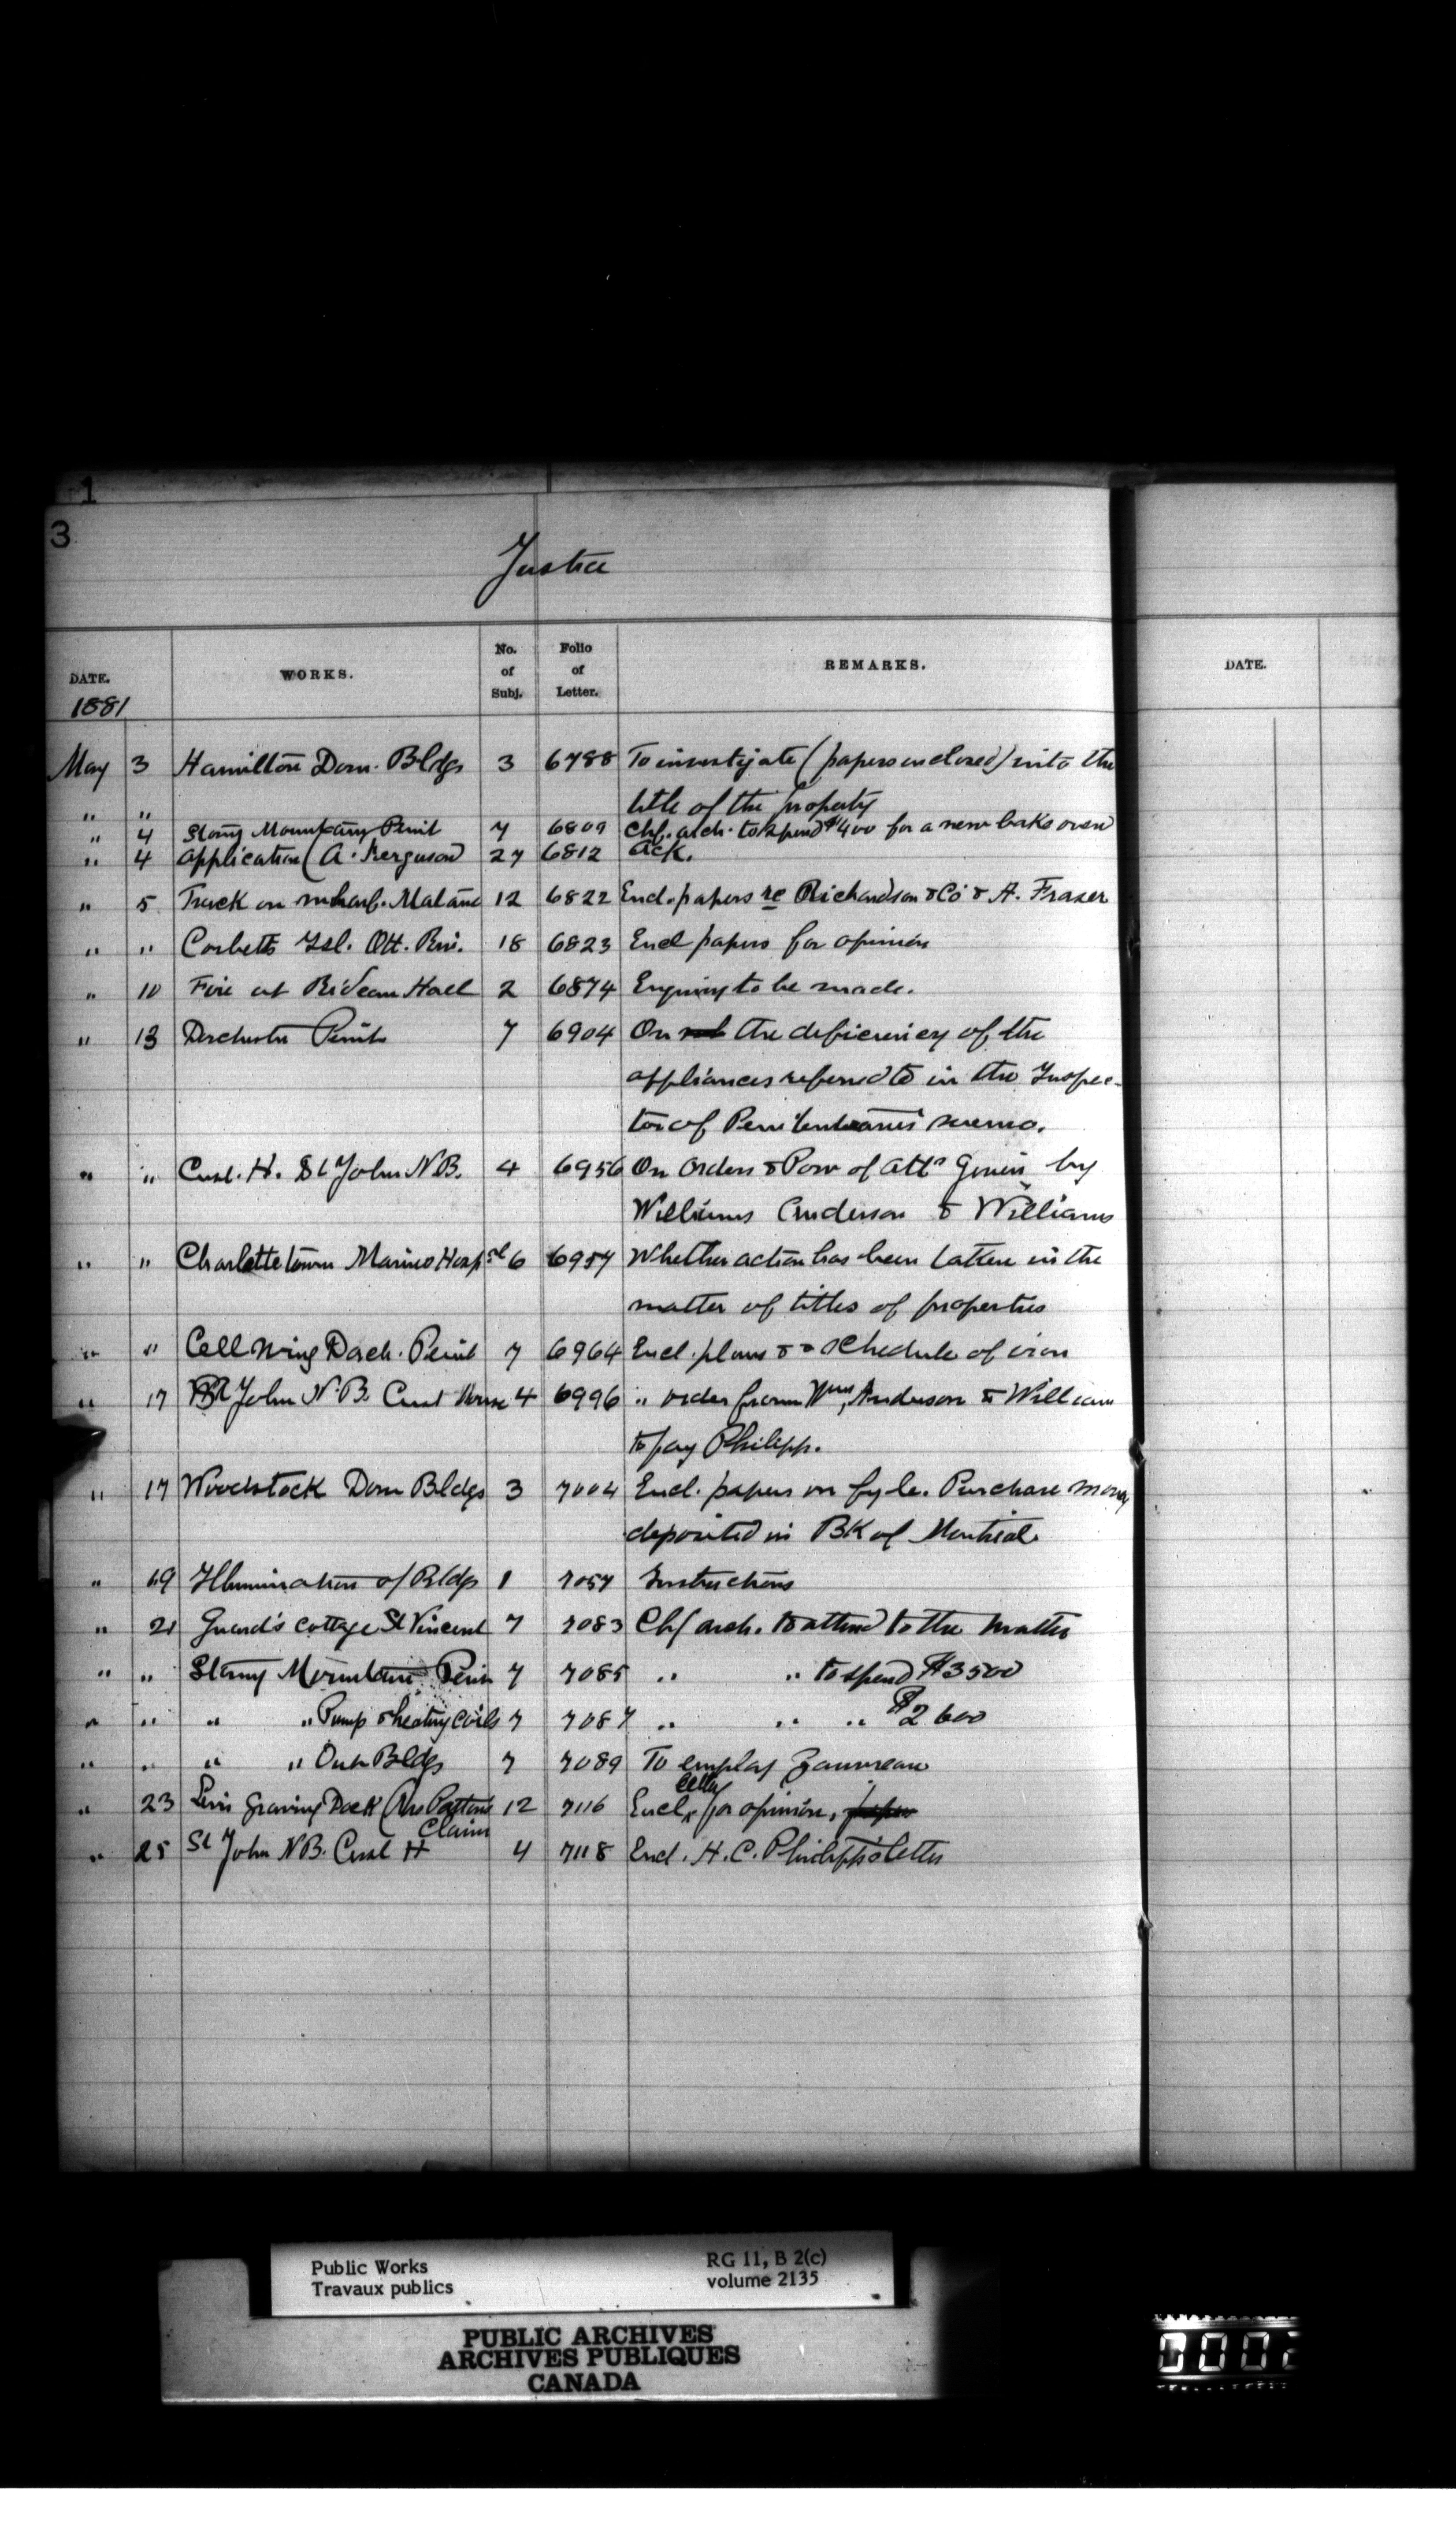 1
3
Justice
DATE. WORKS. No. of Subj. Folio of Letter. REMARKS. DATE.
1881
May 3 Hamilton Dom. Bldgs 3 6788 To investigate (papers enclosed) into the
" " title of the property
" 4 Stony Mountain Penit 7 6809 Chf. arch. to spend $400 for a new bake oven
" 4 application (A. Ferguson) 27 6812 Ack.
" 5 Track on wharf. Matane 12 6822 Encl. papers re Richardson & Co & A. Fraser
" " Corbetts Isl. Ott. Riv. 18 6823 Encl papers for opinion
" 10 Fire at Rideau Hall 2 6874 Enquiry to be made.
" 13 Dorchester Penit 7 6904 On the deficiency of the
appliances referred to in the Inspec-
tor of Penitentiaries memo.
" " Cust. H. St John N.B. 4 6956 On orders & Pow of Atty Given by
Williams Anderson & Williams
" " Charlottetown Marine Hospal 6 6957 Whether action has been taken in the
matter of titles of properties
" " Cell Wing Dorch. Penit 7 6964 Encl. plans & schedule of iron
" 17 St John N.B. Cust House 4 6996 " order from Wms, Anderson & William
to pay Philipp.
" 17 Woodstock Dom Bldgs 3 7004 Encl. papers on fyle. Purchase money
deposited in BK of Montreal
" 19 Illumination of Bldgs 1 7057 Instructions
" 21 Guard's cottage St Vincent 7 7083 Chf arch. to attend to the matter
" " Stony Mountain Penit 7 7085 " " to spend $3500
" " " " Pump & heating coils 7 7087 " " " $2600
" " " " Out Bldgs 7 7089 To employ
" 23 Levis Graving Dock (Mrs Pattons Claim 12 7116 Encl. for opinion,
" 25 St John NB. Cust H 4 7118 Encl. H. C. Philipp's letter
Public Works RG 11, B 2(c)
Travaux publics volume 2135
PUBLIC ARCHIVES
ARCHIVES PUBLIQUES
CANADA
000